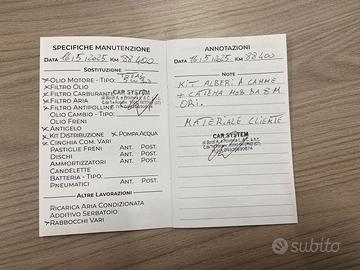 SPECIFICHE MANUTENZIONE
DATA 16/5/2025 KM 88400
SOSTITUZIONE
OLIO MOTORE - TIPO: TOTAL 5W30
FILTRO OLIO
FILTRO CARBURANTE
FILTRO ARIA
FILTRO ANTIPOLLINE
OLIO CAMBIO - TIPO:
OLIO FRENI
ANTIGELO
KIT DISTRIBUZIONE POMPA ACQUA
CINGHIA COM. VARI
PASTIGLIE FRENI ANT. POST.
DISCHI ANT. POST.
AMMORTIZZATORI ANT. POST.
CANDELETTE
BATTERIA - TIPO:
PNEUMATICI ANT. POST.
ALTRE LAVORAZIONI
RICARICA ARIA CONDIZIONATA
ADDITIVO SERBATOIO
RABBOCCHI VARI
CAR SYSTEM
ANNOTAZIONI
DATA 16/5/2025 KM 88400
NOTE
KIT ALBERI A CAMME
+ CATENA
MATERIALE CLIENTE
CAR SYSTEM
subito